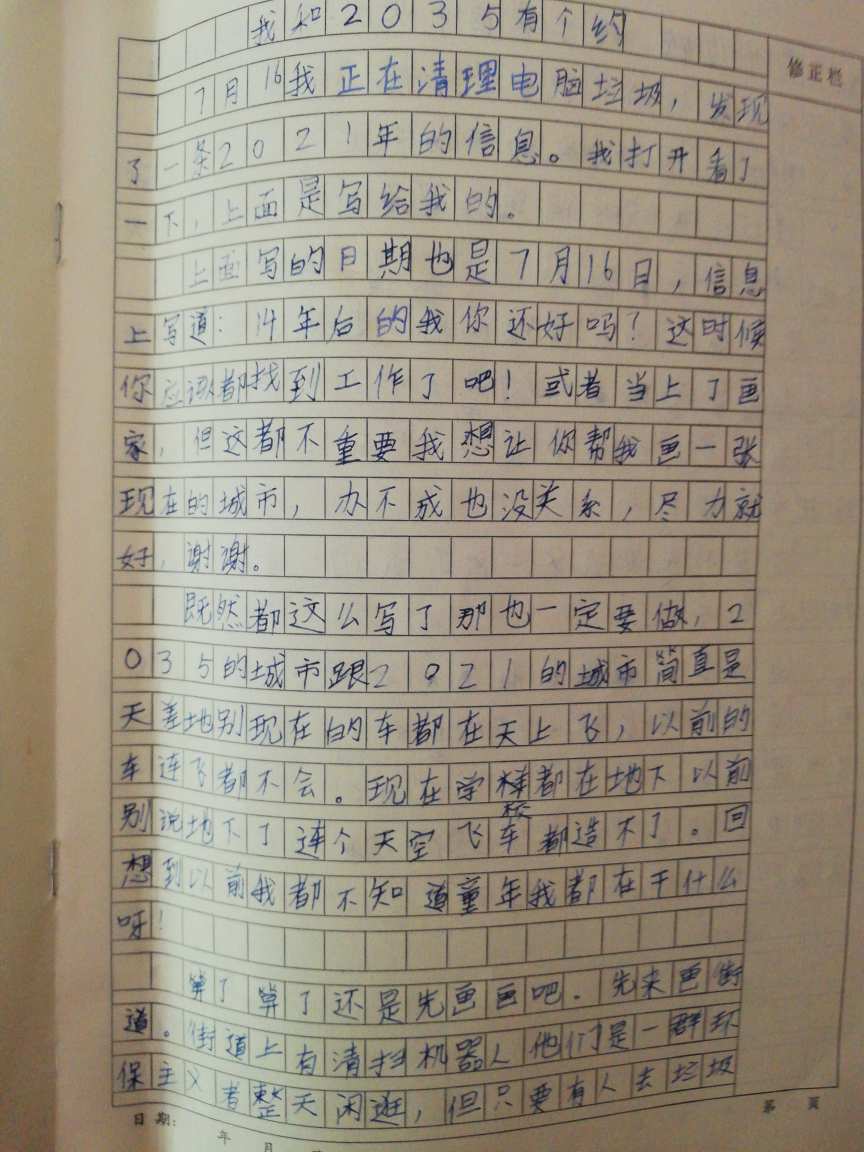 我和2035有个约
修正栏
7月16我正在清理电脑垃圾，发现
了一条2021年的信息。我打开看了
一下，上面是写给我的。
上面写的日期也是7月16日，信息
上写道：14年后的我你还好吗？这时候
你应该都找到工作了吧！或者当上了画
家，但这都不重要我想让你帮我画一张
现在的城市，办不成也没关系，尽力就
好，谢谢。
既然都这么写了那也一定要做，2
035的城市跟2021的城市简直是
天差地别现在的车都在天上飞，以前的
车连飞都不会。现在学校都在地下以前
别说地下了连个天空飞车都造不了。回
想到以前我都不知道童年我都在干什么
呀！
算了算了还是先画画吧．先来画街
道。街道上有清扫机器人他们是一群环
保主义者整天闲逛，但只要有人丢垃圾
日期：
年 月
第 页